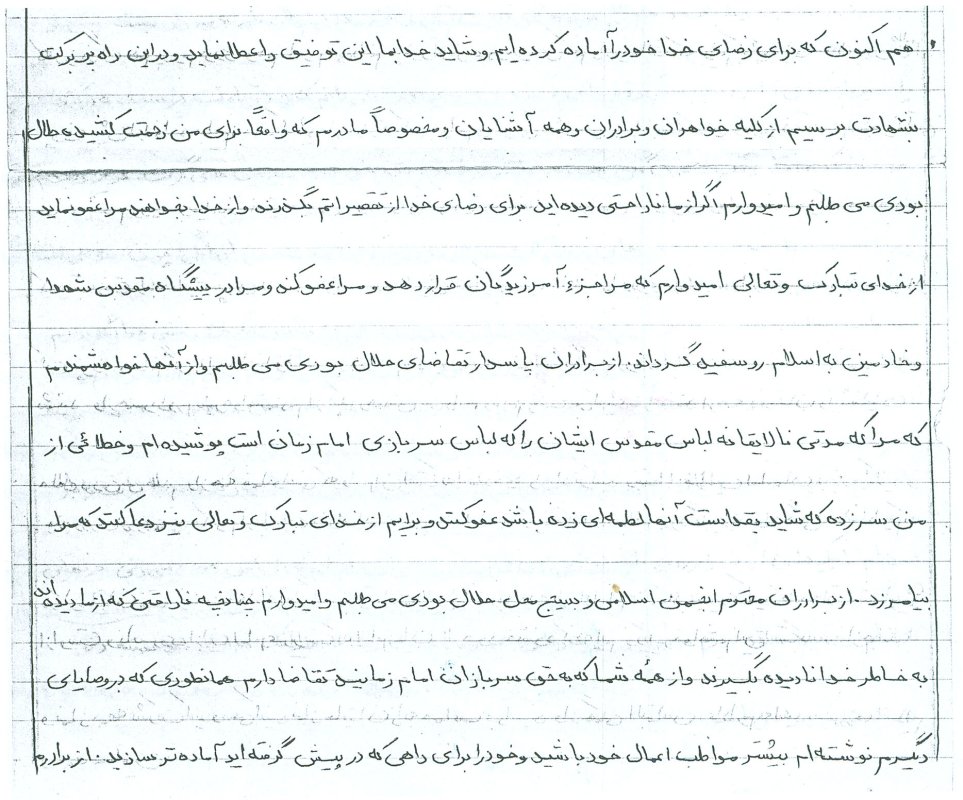 هم اکنون که برای رضای خدا خود را آماده کرده ایم و شاید خدا بما این توفیق را عطا نماید و در این راه پر برکت
بشهادت برسیم از کلیه خواهران و برادران و همه آشنایان و مخصوصاً مادرم که واقعاً برای من زحمت کشیده حلال
بودی می طلبم و امیدوارم اگر از ما ناراحتی دیده اید برای رضای خدا از تقصیراتم بگذرند و از خدا بخواهند مرا عفو نماید
از خدای تبارک و تعالی امیدوارم که مرا جزء آمرزیدگان قرار دهد و مرا عفو کند و مرا در پیشگاه مقدس شهدا
و خادمین به اسلام رو سفید گرداند. از برادران پاسدار تقاضای حلال بودی می طلبم و از آنها خواهشمندم
که مرا که مدتی نالایقانه لباس مقدس ایشان را که لباس سربازی امام زمان است پوشیده ام و خطائی از
من سر زده که شاید بقداست آنها لطمه ای زده باشد عفو کنند و برایم از خدای تبارک و تعالی نیز دعا کنند که مرا
بیامرزد. از برادران محترم انجمن اسلامی و بسیج محل حلال بودی می طلبم و امیدوارم چنانچه ناراحتی که از ما دیده اند
به خاطر خدا نادیده بگیرند و از همهٔ شما که به حق سربازان امام زمانید تقاضا دارم همانطوری که در وصایای
دیگرم نوشته ام بیشتر مواظب اعمال خود باشید و خود را برای راهی که در پیش گرفته اید آماده تر سازید. از برادرم